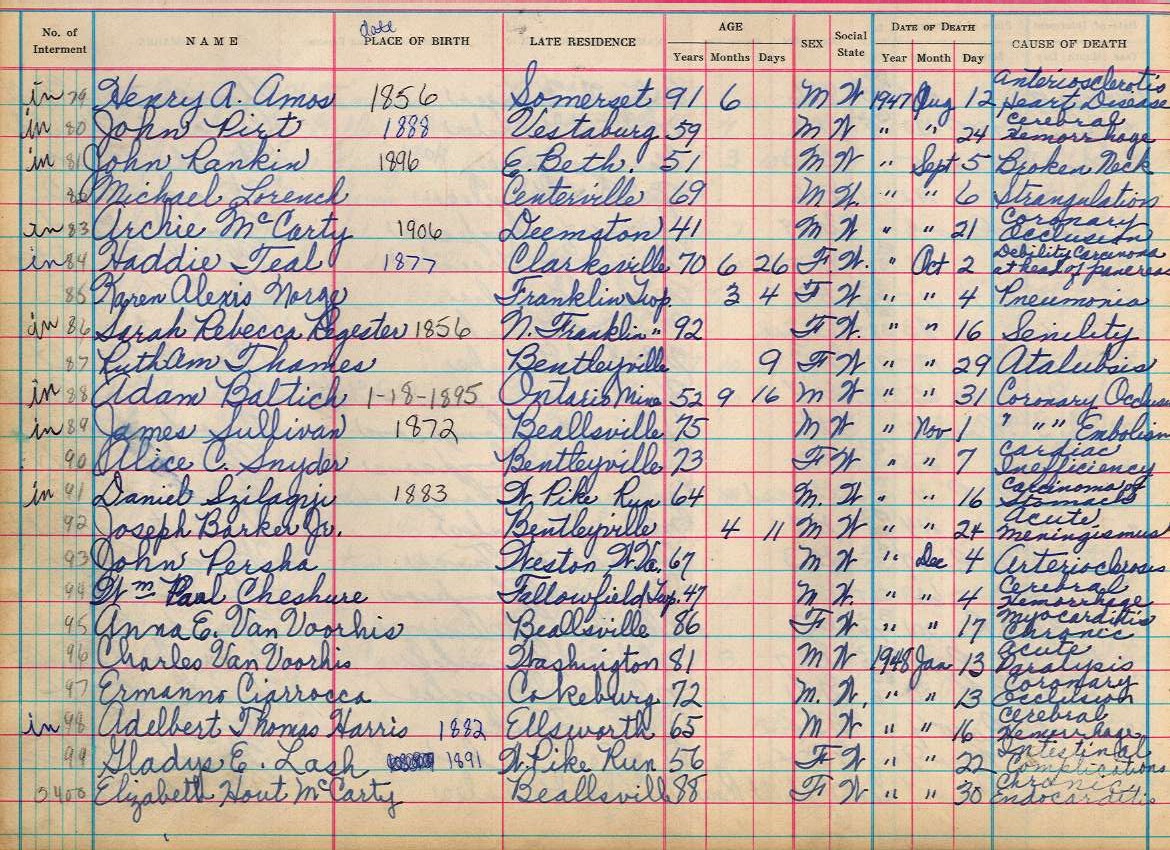 No. of Interment NAME date PLACE OF BIRTH LATE RESIDENCE AGE Years Months Days SEX Social State DATE OF DEATH Year Month Day CAUSE OF DEATH
in 79 Henry A. Amos 1856 Somerset 91 6 M W 1947 Aug 12 Anteriosclerotis Heart Disease
in 80 John Pirt 1888 Vestaburg 59 M W " " 24 Cerebral Hemorrhage
in 81 John Rankin 1896 E. Beth. 51 M W " Sept 5 Broken Neck
Michael Lorench Centerville 69 M W. " " 6 Strangulation
in 83 Archie McCarty 1906 Deemston 41 M W " " 21 Coronary Occlusion
in 84 Haddie Teal 1877 Clarksville 70 6 26 F. W. " Oct 2 Debility Carcinoma at head of pancreas
85 Karen Alexis Norge Franklin Twp. 3 4 F W " " 4 Pneumonia
in 86 Sarah Rebecca Regester 1856 N. Franklin " 92 F W. " " 16 Senility
87 Ruth Ann Thomes Bentleyville 9 F W " " 29 Atalubsis
in 88 Adam Baltich 1-18-1895 Ontario Mine 52 9 16 M W " " 31 Coronary Occlusion
in 89 James Sullivan 1872 Beallsville 75 M W " Nov 1 " " " Embolism
90 Alice C. Snyder Bentleyville 73 F W " " 7 Cardiac Inefficiency
in 91 Daniel Szilagyi 1883 W. Pike Run 64 M. W. " " 16 Carcinoma of Stomach
92 Joseph Barker Jr. Bentleyville 4 11 M W " " 24 Acute meningismus
93 John Persha Weston W. Va. 67 M W " Dec 4 Arterioclerosis
94 Wm Paul Cheshure Fallowfield Twp. 47 M W. " " 4 Cerebral Hemorrhage
95 Anna E. Van Voorhis Beallsville 86 F W " " 17 Myocarditis Chronic
96 Charles Van Voorhis Washington 81 M W 1948 Jan 13 Acute Paralysis
97 Ermanno Ciarrocca Cokeburg 72 M. W. " " 13 Coronary Occlusion
in 98 Adelbert Thomas Harris 1882 Ellsworth 65 M W " " 16 Cerebral Hemorrhage
99 Gladys E. Lash 1891 W. Pike Run 56 F W " " 22 Intestinal Complications
5400 Elizabeth Hout McCarty Beallsville 88 F W " " 30 Chronic Endocarditis